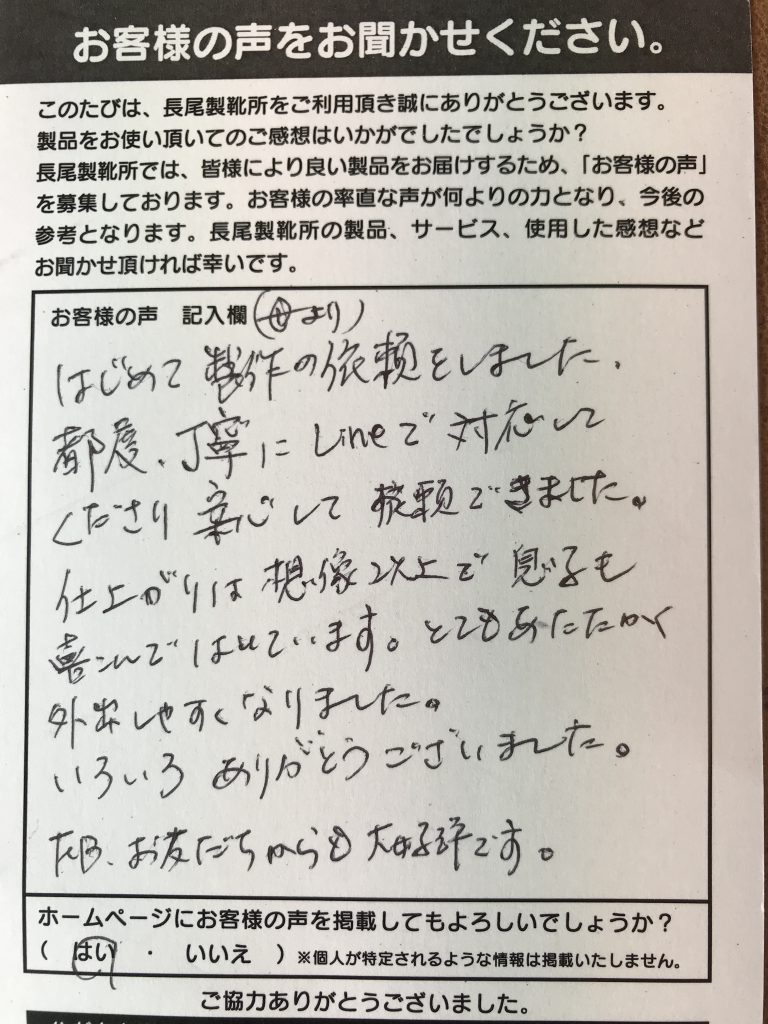 お客様の声をお聞かせください。
このたびは、長尾製靴所をご利用頂き誠にありがとうございます。
製品をお使い頂いてのご感想はいかがでしたでしょうか？
長尾製靴所では、皆様により良い製品をお届けするため、「お客様の声」
を募集しております。お客様の率直な声が何よりの力となり、今後の
参考となります。長尾製靴所の製品、サービス、使用した感想など
お聞かせ頂ければ幸いです。
お客様の声　記入欄 (母より)
はじめて製作の依頼をしました、
都度、丁寧にLineで対応して
くださり安心して依頼できました。
仕上がりは想像以上で息子も
喜こんではいています。とてもあたたかく
外出しやすくなりました。
いろいろありがとうございました。
お友だちからも大好評です。
ホームページにお客様の声を掲載してもよろしいでしょうか？
（ はい ・ いいえ ）※個人が特定されるような情報は掲載いたしません。
ご協力ありがとうございました。